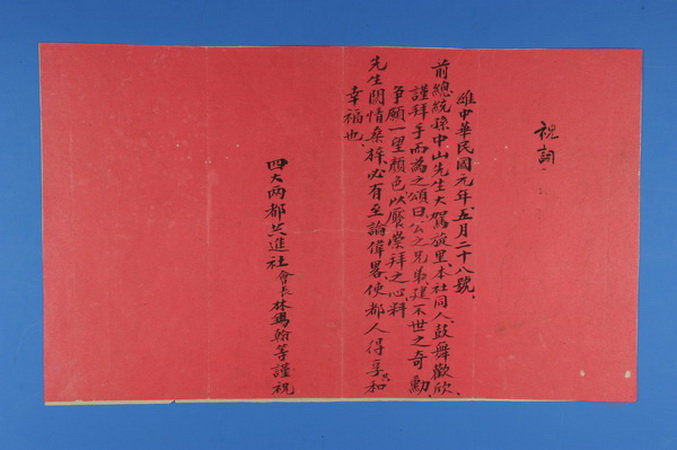 祝詞
維中華民國元年、五月二十八號、
前總統孫中山先生大駕旋里、本社同人、鼓舞歡欣、
謹拜手而為之頌曰、公之兄弟、建不世之奇勳、
爭願一望顏色、以饜崇拜之心、料
先生關情桑梓、必有至論偉畧、使都人得享共和
幸福也、
四大兩都共進社會長林鎷翰等謹祝